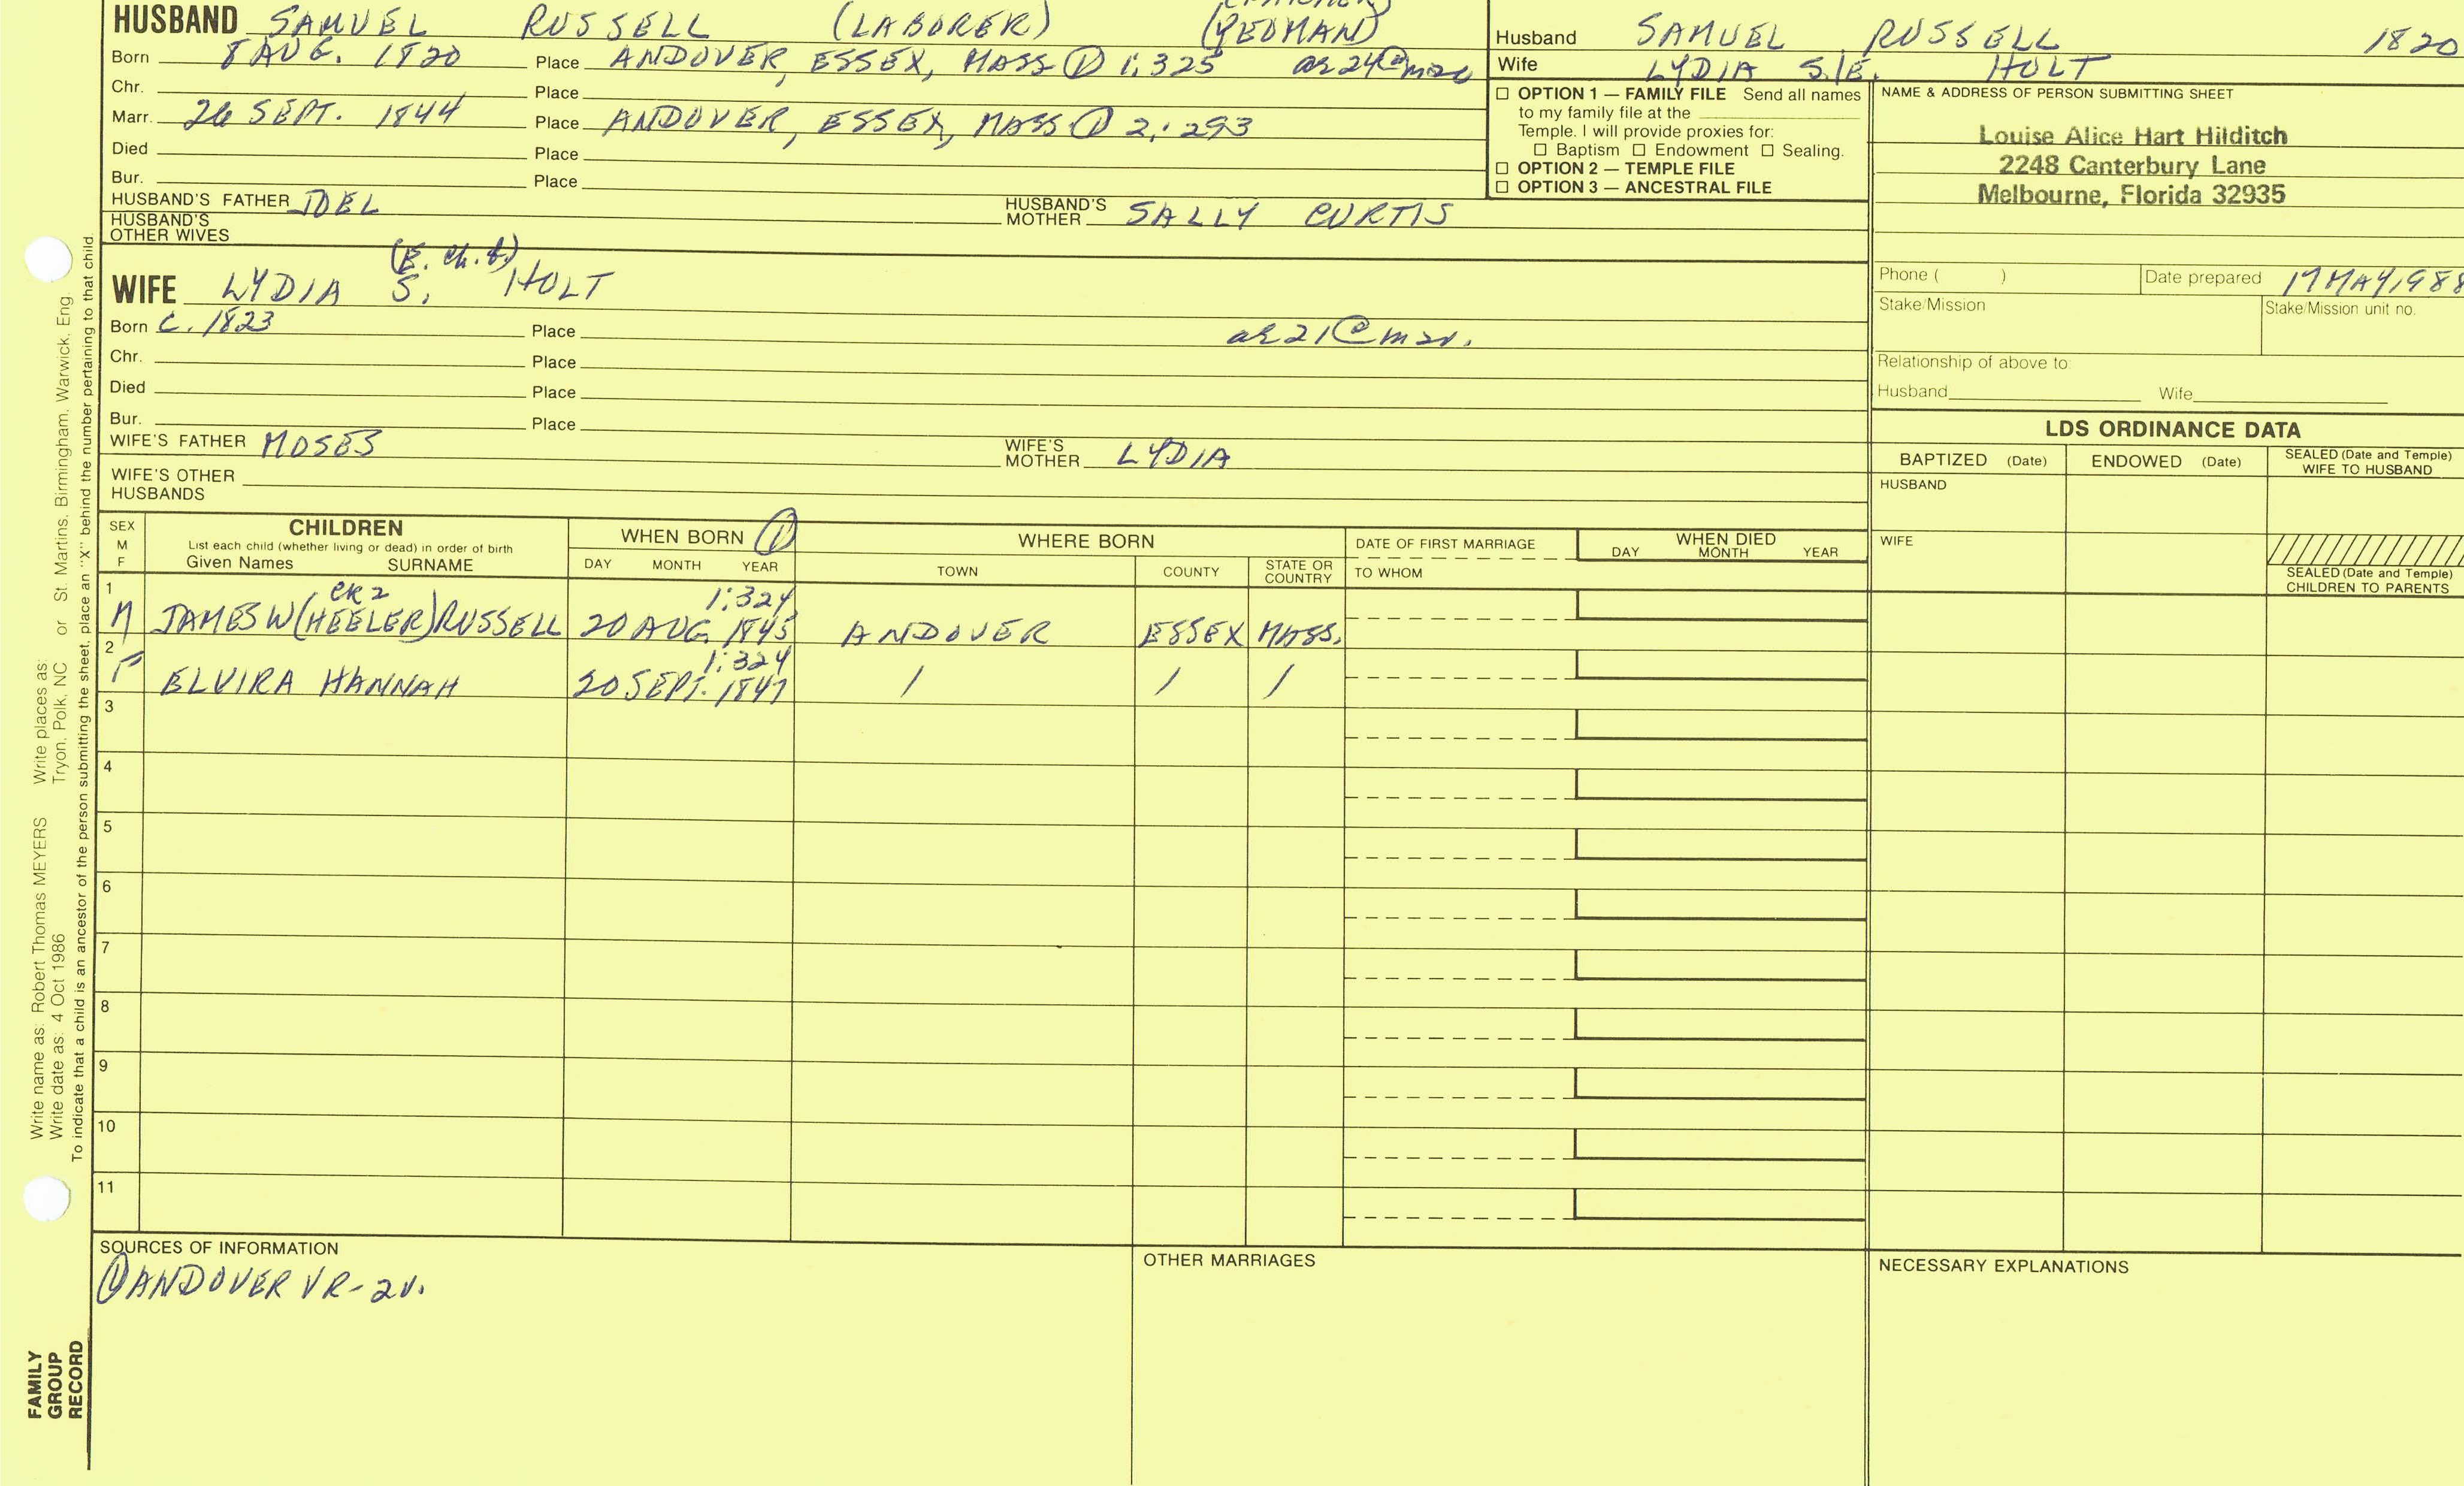 HUSBAND SAMUEL RUSSELL (LABORER) (YEOMAN)
Born 8 AUG. 1820 Place ANDOVER, ESSEX, MASS ① 1:325 ae 24@m
Chr. Place
Marr. 26 SEPT. 1844 Place ANDOVER, ESSEX, MASS ① 2:293
Died Place
Bur. Place
HUSBAND'S FATHER JOEL HUSBAND'S MOTHER SALLY CURTIS
HUSBAND'S OTHER WIVES
(E. ch. b.)
WIFE LYDIA S. HOLT
Born c. 1823 Place ae 21@m
Chr. Place
Died Place
Bur. Place
WIFE'S FATHER MOSES WIFE'S MOTHER LYDIA
WIFE'S OTHER HUSBANDS
Husband SAMUEL RUSSELL 1820
Wife LYDIA S./E. HOLT
☐ OPTION 1 — FAMILY FILE Send all names
to my family file at the
Temple. I will provide proxies for:
☐ Baptism ☐ Endowment ☐ Sealing.
☐ OPTION 2 — TEMPLE FILE
☐ OPTION 3 — ANCESTRAL FILE
NAME & ADDRESS OF PERSON SUBMITTING SHEET
Louise Alice Hart Hilditch
2248 Canterbury Lane
Melbourne, Florida 32935
Phone ( ) Date prepared 17 MAY 1988
Stake/Mission Stake/Mission unit no.
Relationship of above to:
Husband Wife
LDS ORDINANCE DATA
BAPTIZED (Date) ENDOWED (Date) SEALED (Date and Temple) WIFE TO HUSBAND
HUSBAND
WIFE
SEALED (Date and Temple)
CHILDREN TO PARENTS
SEX M F
CHILDREN
List each child (whether living or dead) in order of birth
Given Names SURNAME
WHEN BORN ①
DAY MONTH YEAR
WHERE BORN
TOWN COUNTY STATE OR COUNTRY
DATE OF FIRST MARRIAGE
TO WHOM
WHEN DIED
DAY MONTH YEAR
1 CR2 1:324
M JAMES W(HEELER) RUSSELL 20 AUG. 1845 ANDOVER ESSEX MASS.
2 1:324
F ELVIRA HANNAH 20 SEPT. 1847 / / /
3
4
5
6
7
8
9
10
11
SOURCES OF INFORMATION
① ANDOVER VR-2V.
OTHER MARRIAGES
NECESSARY EXPLANATIONS
Write name as: Robert Thomas MEYERS Write places as: St. Martins, Birmingham, Warwick, Eng.
Write date as: 4 Oct 1986 Tryon, Polk, NC or
To indicate that a child is an ancestor of the person submitting the sheet, place an "X" behind the number pertaining to that child.
FAMILY
GROUP
RECORD